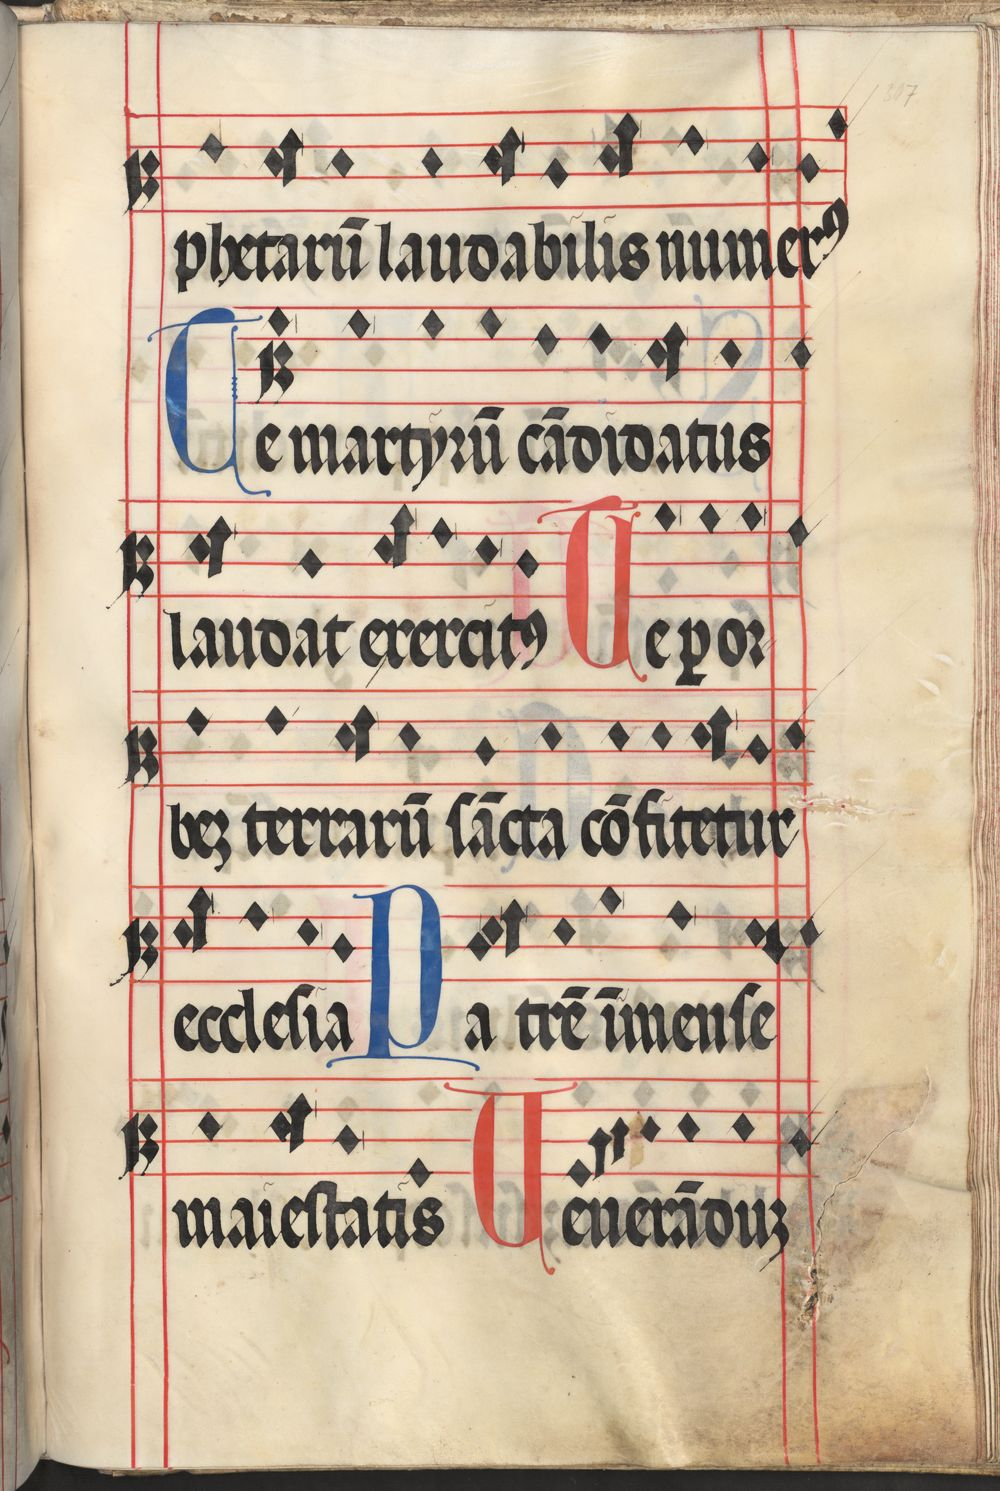 307
phetarū laudabilis numerꝰ
Te martyrū cādidatus
laudat exercitꝰ Te ꝑ or
beꝫ terrarū sācta cōfitetur
ecclesia Patrē īmense
maiestatis Ueuerāduꝫ